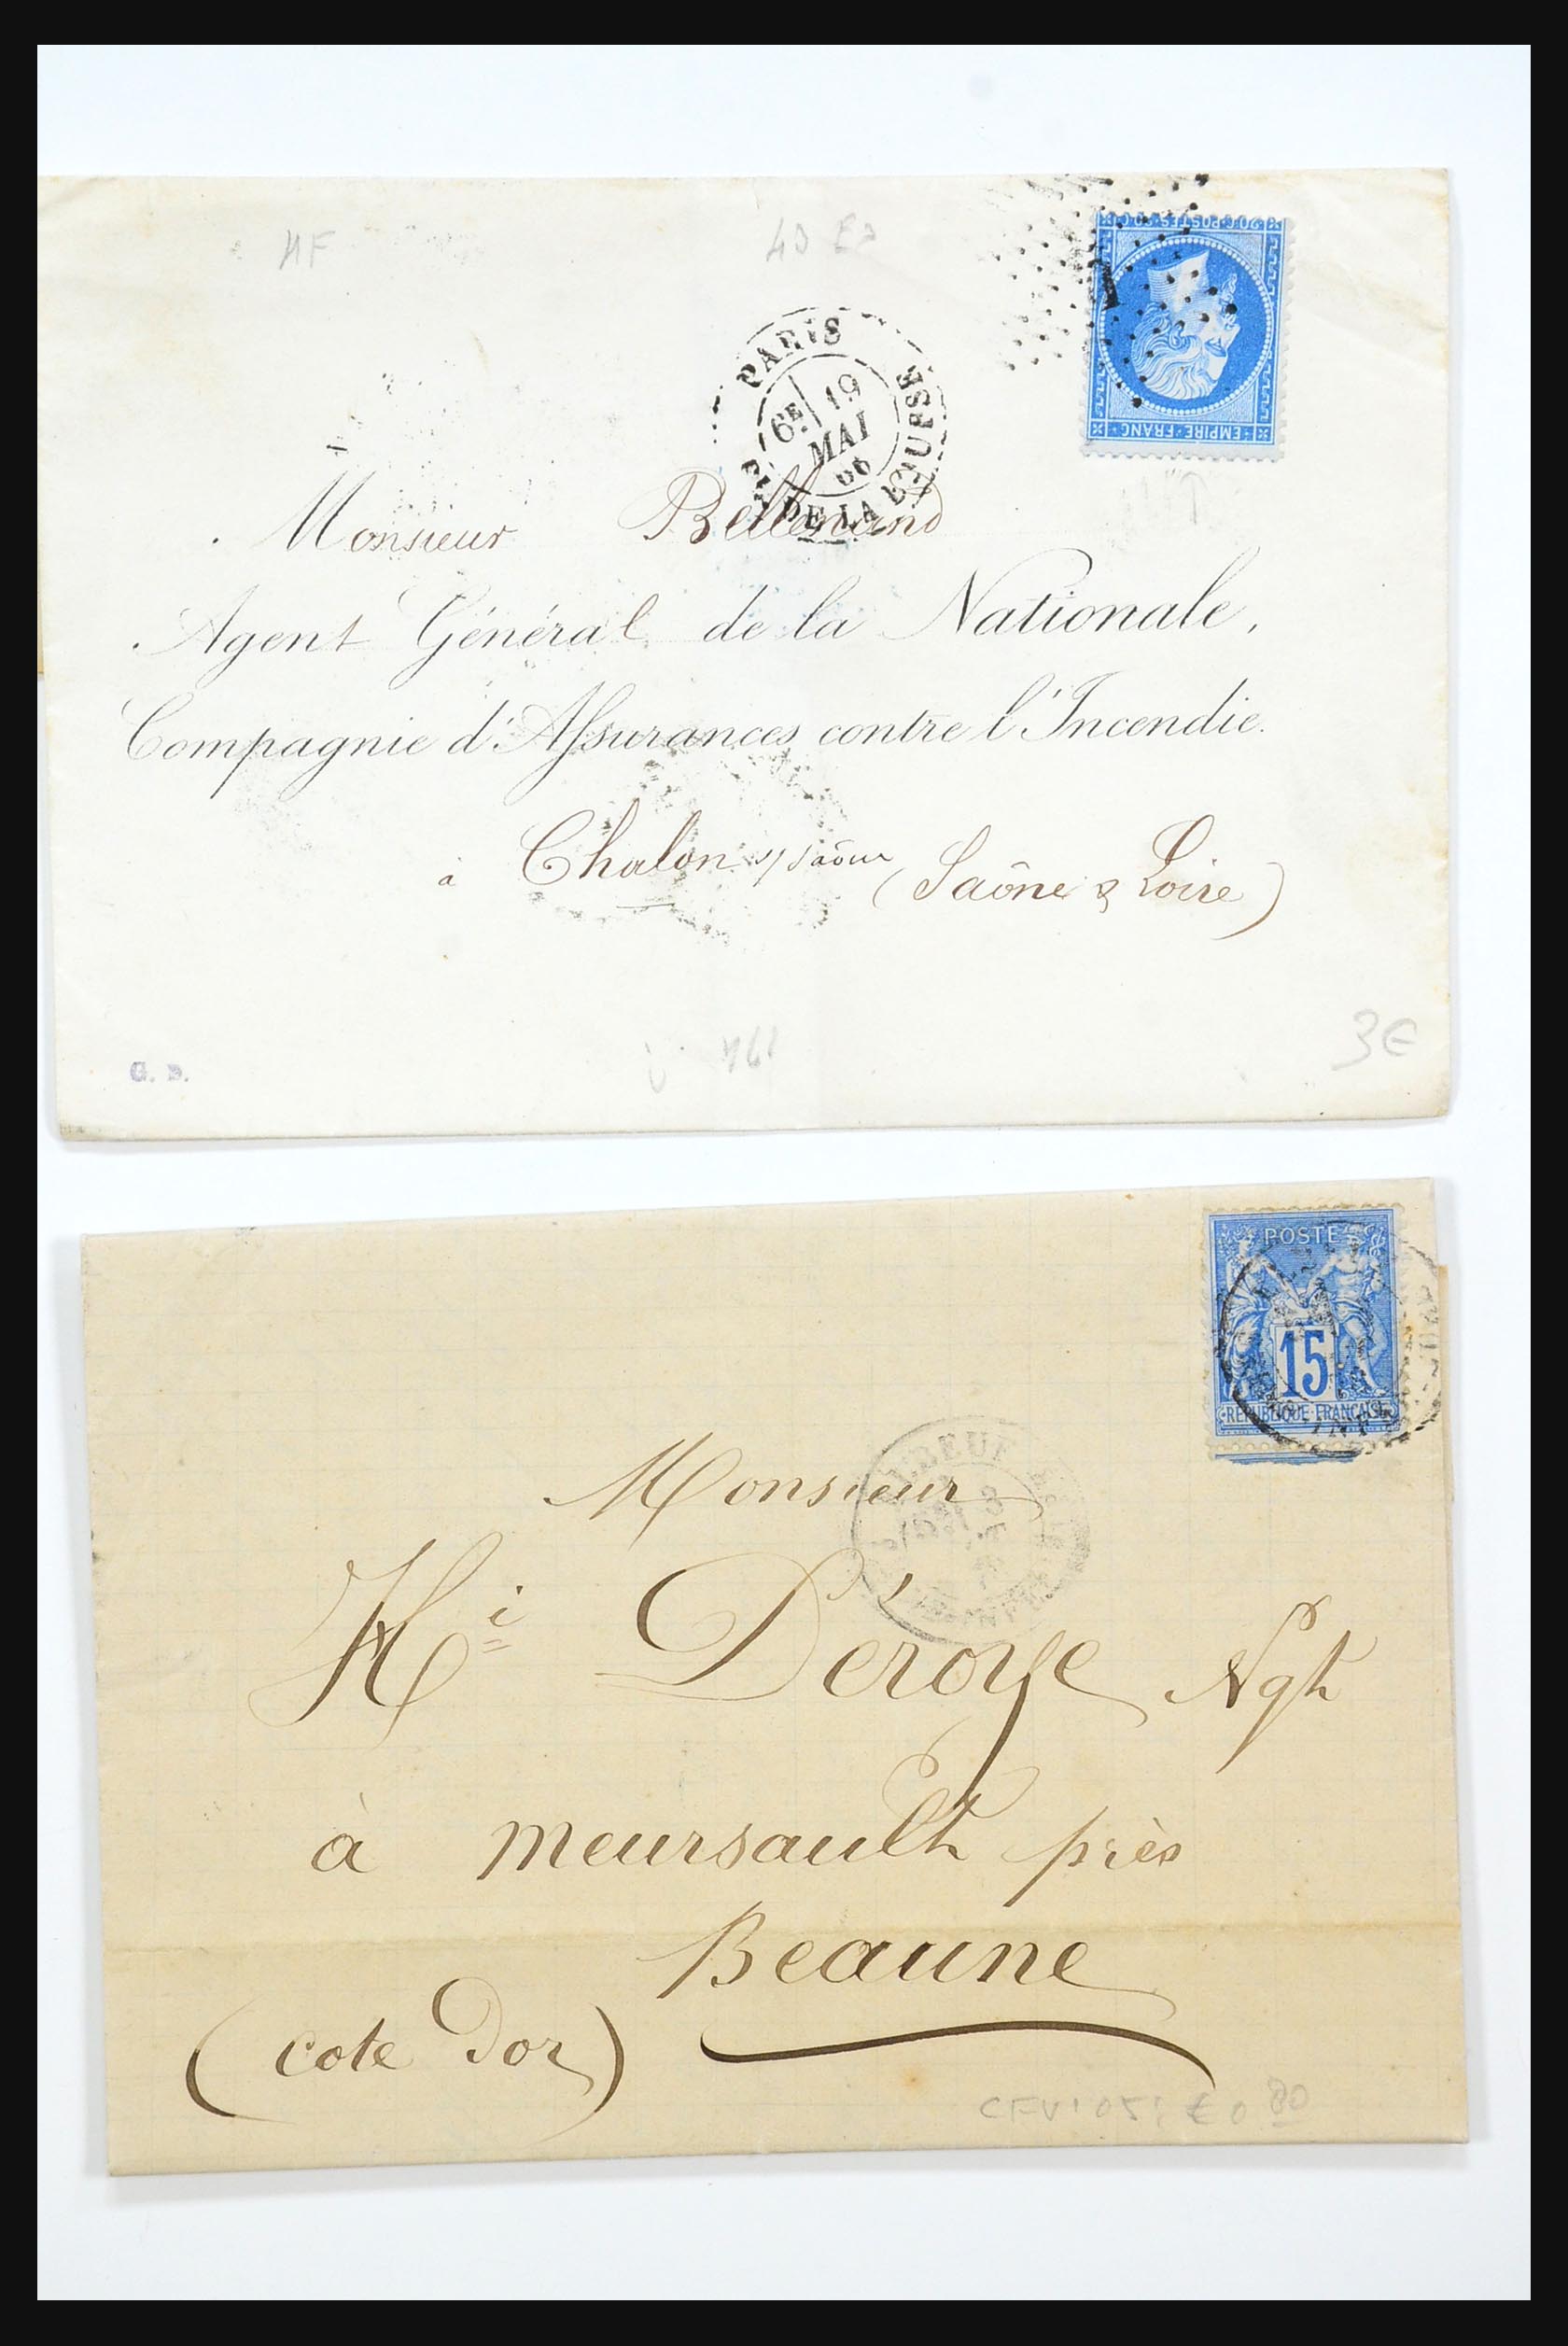 PARIS
6E 19
MAI
66
PL. DE LA BOURSE
20 C POSTES 20 C
EMPIRE FRANC
1
Monsieur Bellenand
Agent Général de la Nationale,
Compagnie d'Assurances contre l'Incendie.
à Chalon s/ Saône (Saône & Loire)
G. D.
3€
POSTE
15
REPUBLIQUE FRANCAISE
ELBEUF
INF
Monsieur
Hi Déroye Ngt
à Meursault près
Beaune
(cote Dor)
€ 0 80